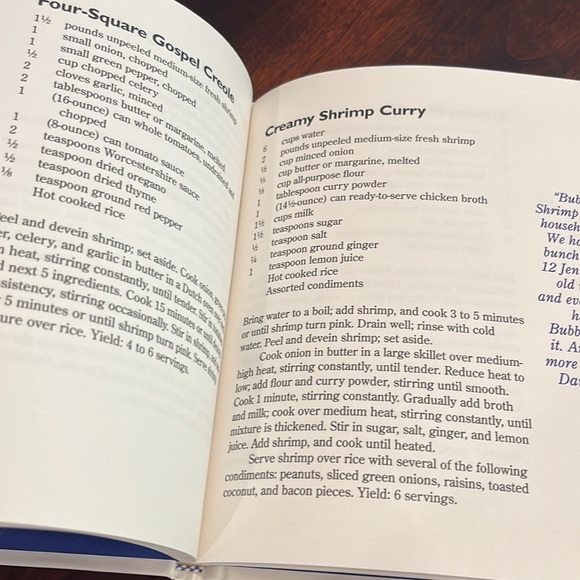 Four-Square Gospel Creole
1½ pounds unpeeled medium-size fresh shrimp
1 small onion, chopped
1 small green pepper, chopped
½ cup chopped celery
2 cloves garlic, minced
2 tablespoons butter or margarine, melted
1 (16-ounce) can whole tomatoes, undrained and
chopped
1 (8-ounce) can tomato sauce
2 teaspoons Worcestershire sauce
½ teaspoon dried oregano
½ teaspoon dried thyme
⅛ teaspoon ground red pepper
Hot cooked rice
eel and devein shrimp; set aside. Cook onion, green
r, celery, and garlic in butter in a Dutch oven over
heat, stirring constantly, until tender. Stir in
next 5 ingredients. Cook 15 minutes or until
sistency, stirring occasionally. Stir in shrimp, and
5 minutes or until shrimp turn pink. Serve shrimp
ure over rice. Yield: 4 to 6 servings.
Creamy Shrimp Curry
6 cups water
2 pounds unpeeled medium-size fresh shrimp
cup minced onion
cup butter or margarine, melted
cup all-purpose flour
1 tablespoon curry powder
1 (14½-ounce) can ready-to-serve chicken broth
1½ cups milk
1½ teaspoons sugar
½ teaspoon salt
¼ teaspoon ground ginger
1 teaspoon lemon juice
Hot cooked rice
Assorted condiments
Bring water to a boil; add shrimp, and cook 3 to 5 minutes
or until shrimp turn pink. Drain well; rinse with cold
water. Peel and devein shrimp; set aside.
Cook onion in butter in a large skillet over medium-
high heat, stirring constantly, until tender. Reduce heat to
low; add flour and curry powder, stirring until smooth.
Cook 1 minute, stirring constantly. Gradually add broth
and milk; cook over medium heat, stirring constantly, until
mixture is thickened. Stir in sugar, salt, ginger, and lemon
juice. Add shrimp, and cook until heated.
Serve shrimp over rice with several of the following
condiments: peanuts, sliced green onions, raisins, toasted
coconut, and bacon pieces. Yield: 6 servings.
"Bub
Shrimp
househ
We ha
bunch
12 Jen
old
and ev
h
Bubb
it. A
more
Da